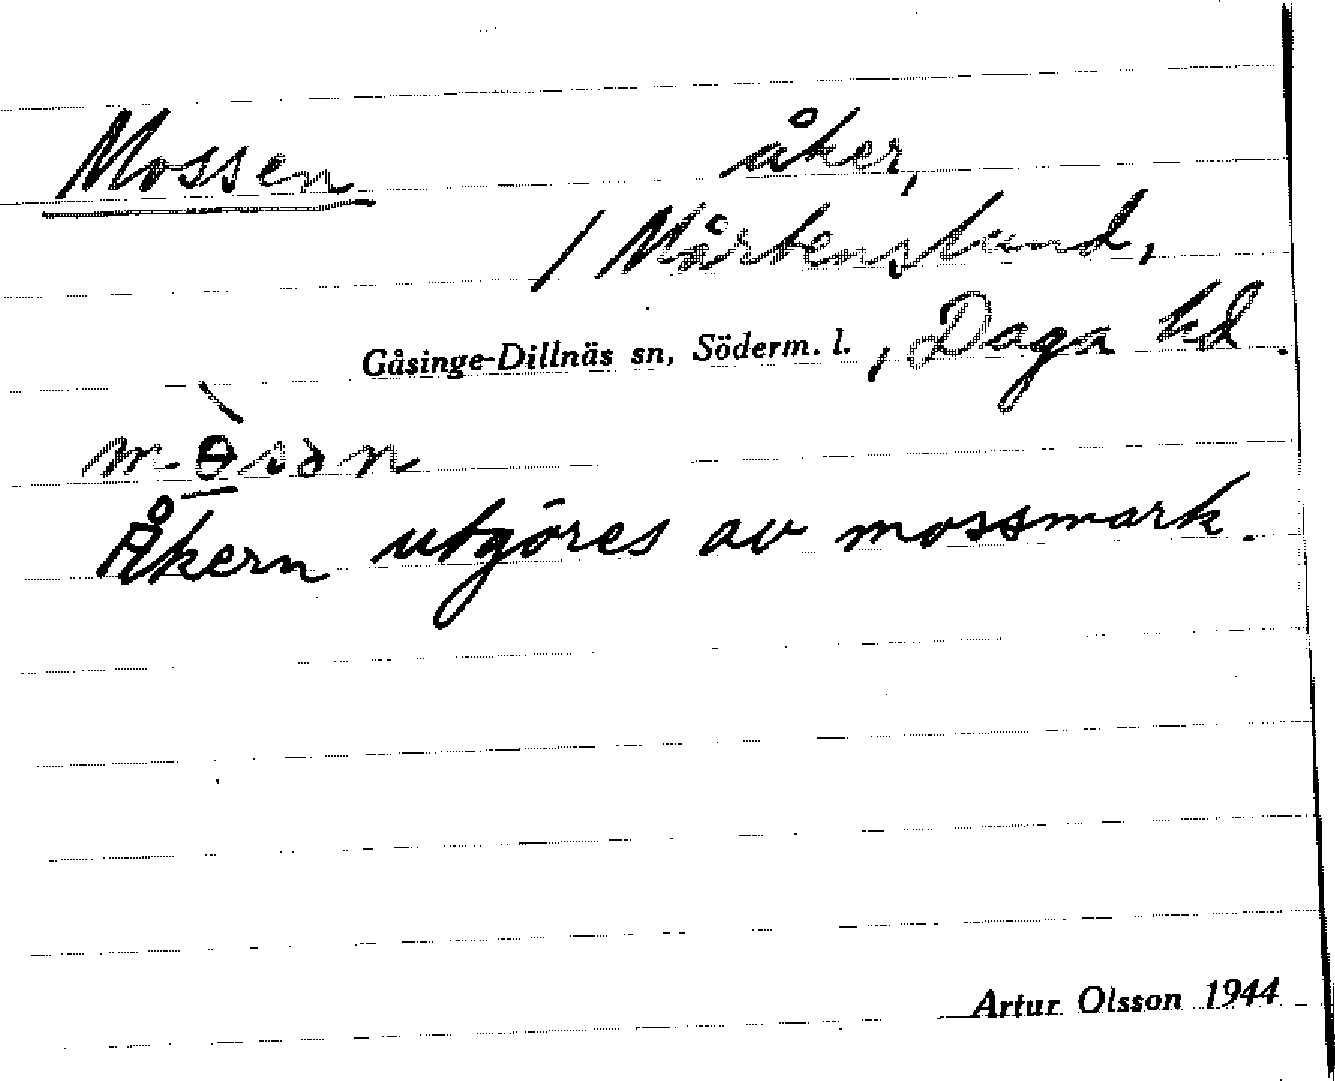 Mossen åker,
/ Mårtenslund,
Gåsinge-Dillnäs sn, Söderm. l., Daga hd.
Åkern utgöres av mossmark.
Artur Olsson 1944